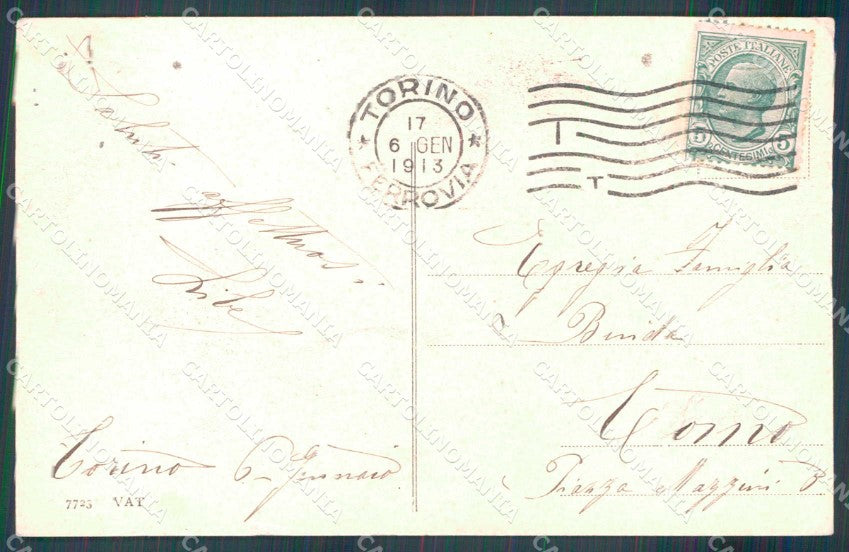 Saluti
aff
Torino 6 Gennaio
7725 VAT
TORINO
17
6 GEN
1913
FERROVIA
POSTE ITALIANE
CENTESIMI
5
Egregia Famiglia
Binda
Como
Piazza Mazzini 3
CARTOLINOMANIA